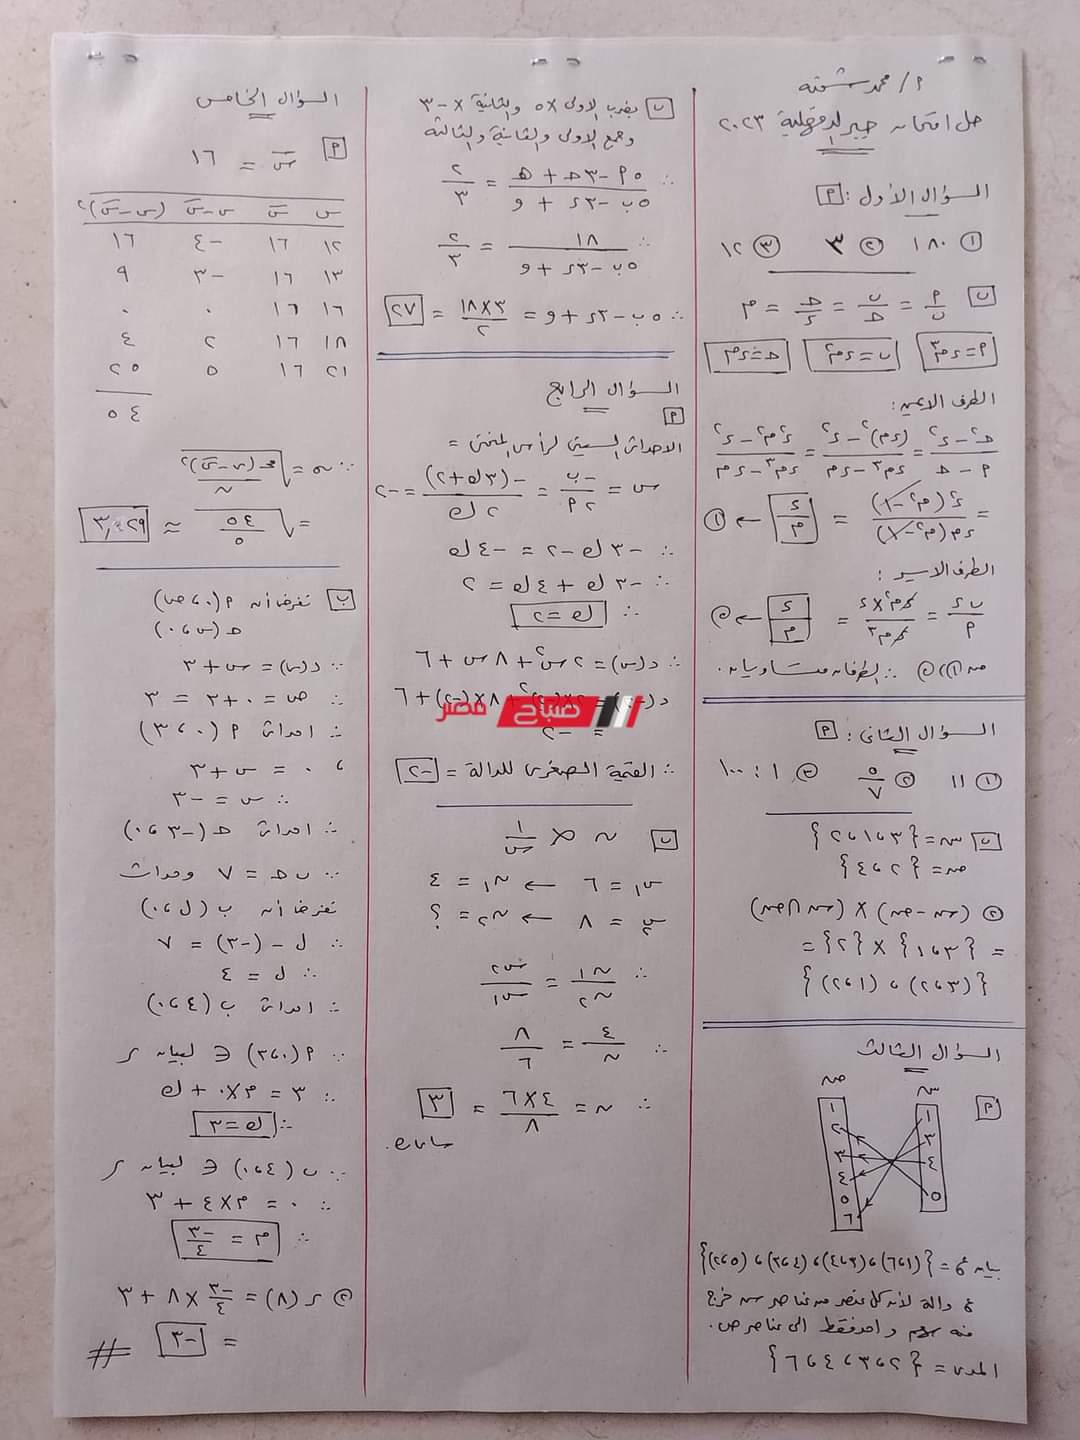 أ / محمد شحته
حل امتحان جبر الدقهلية ٢٠٢٣
السؤال الأول : أ
① ١٨٠ ② ٣ ③ ١٢
ب أ/ب = ب/ح = ح/د = م
أ = د م٣ ب = د م٢ ح = د م
الطرف الايمن :
(ح٢ - د٢)/(أ - ح) = ((د م)٢ - د٢)/(د م٣ - د م) = (د٢ م٢ - د٢)/(د م٣ - د م)
= د٢(م٢ - ١)/(د م(م٢ - ١)) = د/م ← ①
الطرف الايسر :
ب د/أ = (د م٢ × د)/(د م٣) = د/م ← ②
من ①، ② ∴ الطرفان متساويان.
السؤال الثانى : أ
① ١١ ② ٥/٧ ③ ١ : ١٠٠
ب س = {٣، ١، ٢}
ص = {٢، ٤}
② (س - ص) × (س ∩ ص)
= {٣، ١} × {٢} =
{(٣، ٢)، (١، ٢)}
السؤال الثالث
أ
س ص
١ ١
٣ ٢
٤ ٣
٥ ٤
٥
٦
بيان ع = {(١، ٦)، (٣، ٤)، (٤، ٣)، (٥، ٢)}
ع دالة لأن كل عنصر من عناصر س خرج
منه سهم واحد فقط الى عناصر ص.
المدى = {٢، ٣، ٤، ٦}
ب بضرب الاولى × ٥ والثانية × -٣
وجمع الاولى والثانية والثالثة
∴ (٥أ - ٣ح + ه)/(٥ب - ٣د + و) = ٢/٣
∴ ١٨/(٥ب - ٣د + و) = ٢/٣
∴ ٥ب - ٣د + و = (٣ × ١٨)/٢ = ٢٧
السؤال الرابع
أ
الاحداثى السينى لرأس المنحنى =
س = -ب/٢أ = -(٣ك + ٢)/٢ك = -٢
∴ -٣ك - ٢ = -٤ك
∴ -٣ك + ٤ك = ٢
∴ ك = ٢
∴ د(س) = ٢س٢ + ٨س + ٦
د(-٢) = ٢×(-٢)٢ + ٨×(-٢) + ٦
= -٢
صباح مصر
∴ القيمة الصغرى للدالة = -٢
ب ن ∝ ١/س
س١ = ٦ ← ن١ = ٤
س٢ = ٨ ← ن٢ = ؟
∴ ن١/ن٢ = س٢/س١
∴ ٤/ن = ٨/٦
∴ ن = (٤×٦)/٨ = ٣
ساعات.
السؤال الخامس
أ س̄ = ١٦
س س̄ س-س̄ (س-س̄)٢
١٢ ١٦ -٤ ١٦
١٣ ١٦ -٣ ٩
١٦ ١٦ ٠ ٠
١٨ ١٦ ٢ ٤
٢١ ١٦ ٥ ٢٥
٥٤
∵ σ = √(مجـ(س-س̄)٢/ن)
= √(٥٤/٥) ≈ ٣,٢٩
ب نفرض أن أ (٠، ص)
ح (س، ٠)
∵ د(س) = س + ٣
∴ ص = ٠ + ٣ = ٣
∴ احداثى أ (٠، ٣)
، ٠ = س + ٣
∴ س = -٣
∴ احداثى ح (-٣، ٠)
∵ ب ح = ٧ وحدات
نفرض أن ب (ل، ٠)
∴ ل - (-٣) = ٧
∴ ل = ٤
∴ احداثى ب (٤، ٠)
∵ أ (٠، ٣) ∈ لبيان ر
∴ ٣ = م×٠ + ك
∴ ك = ٣
∵ ب (٤، ٠) ∈ لبيان ر
∴ ٠ = م×٤ + ٣
∴ م = -٣/٤
② ر(٨) = -٣/٤ × ٨ + ٣
= -٣
#